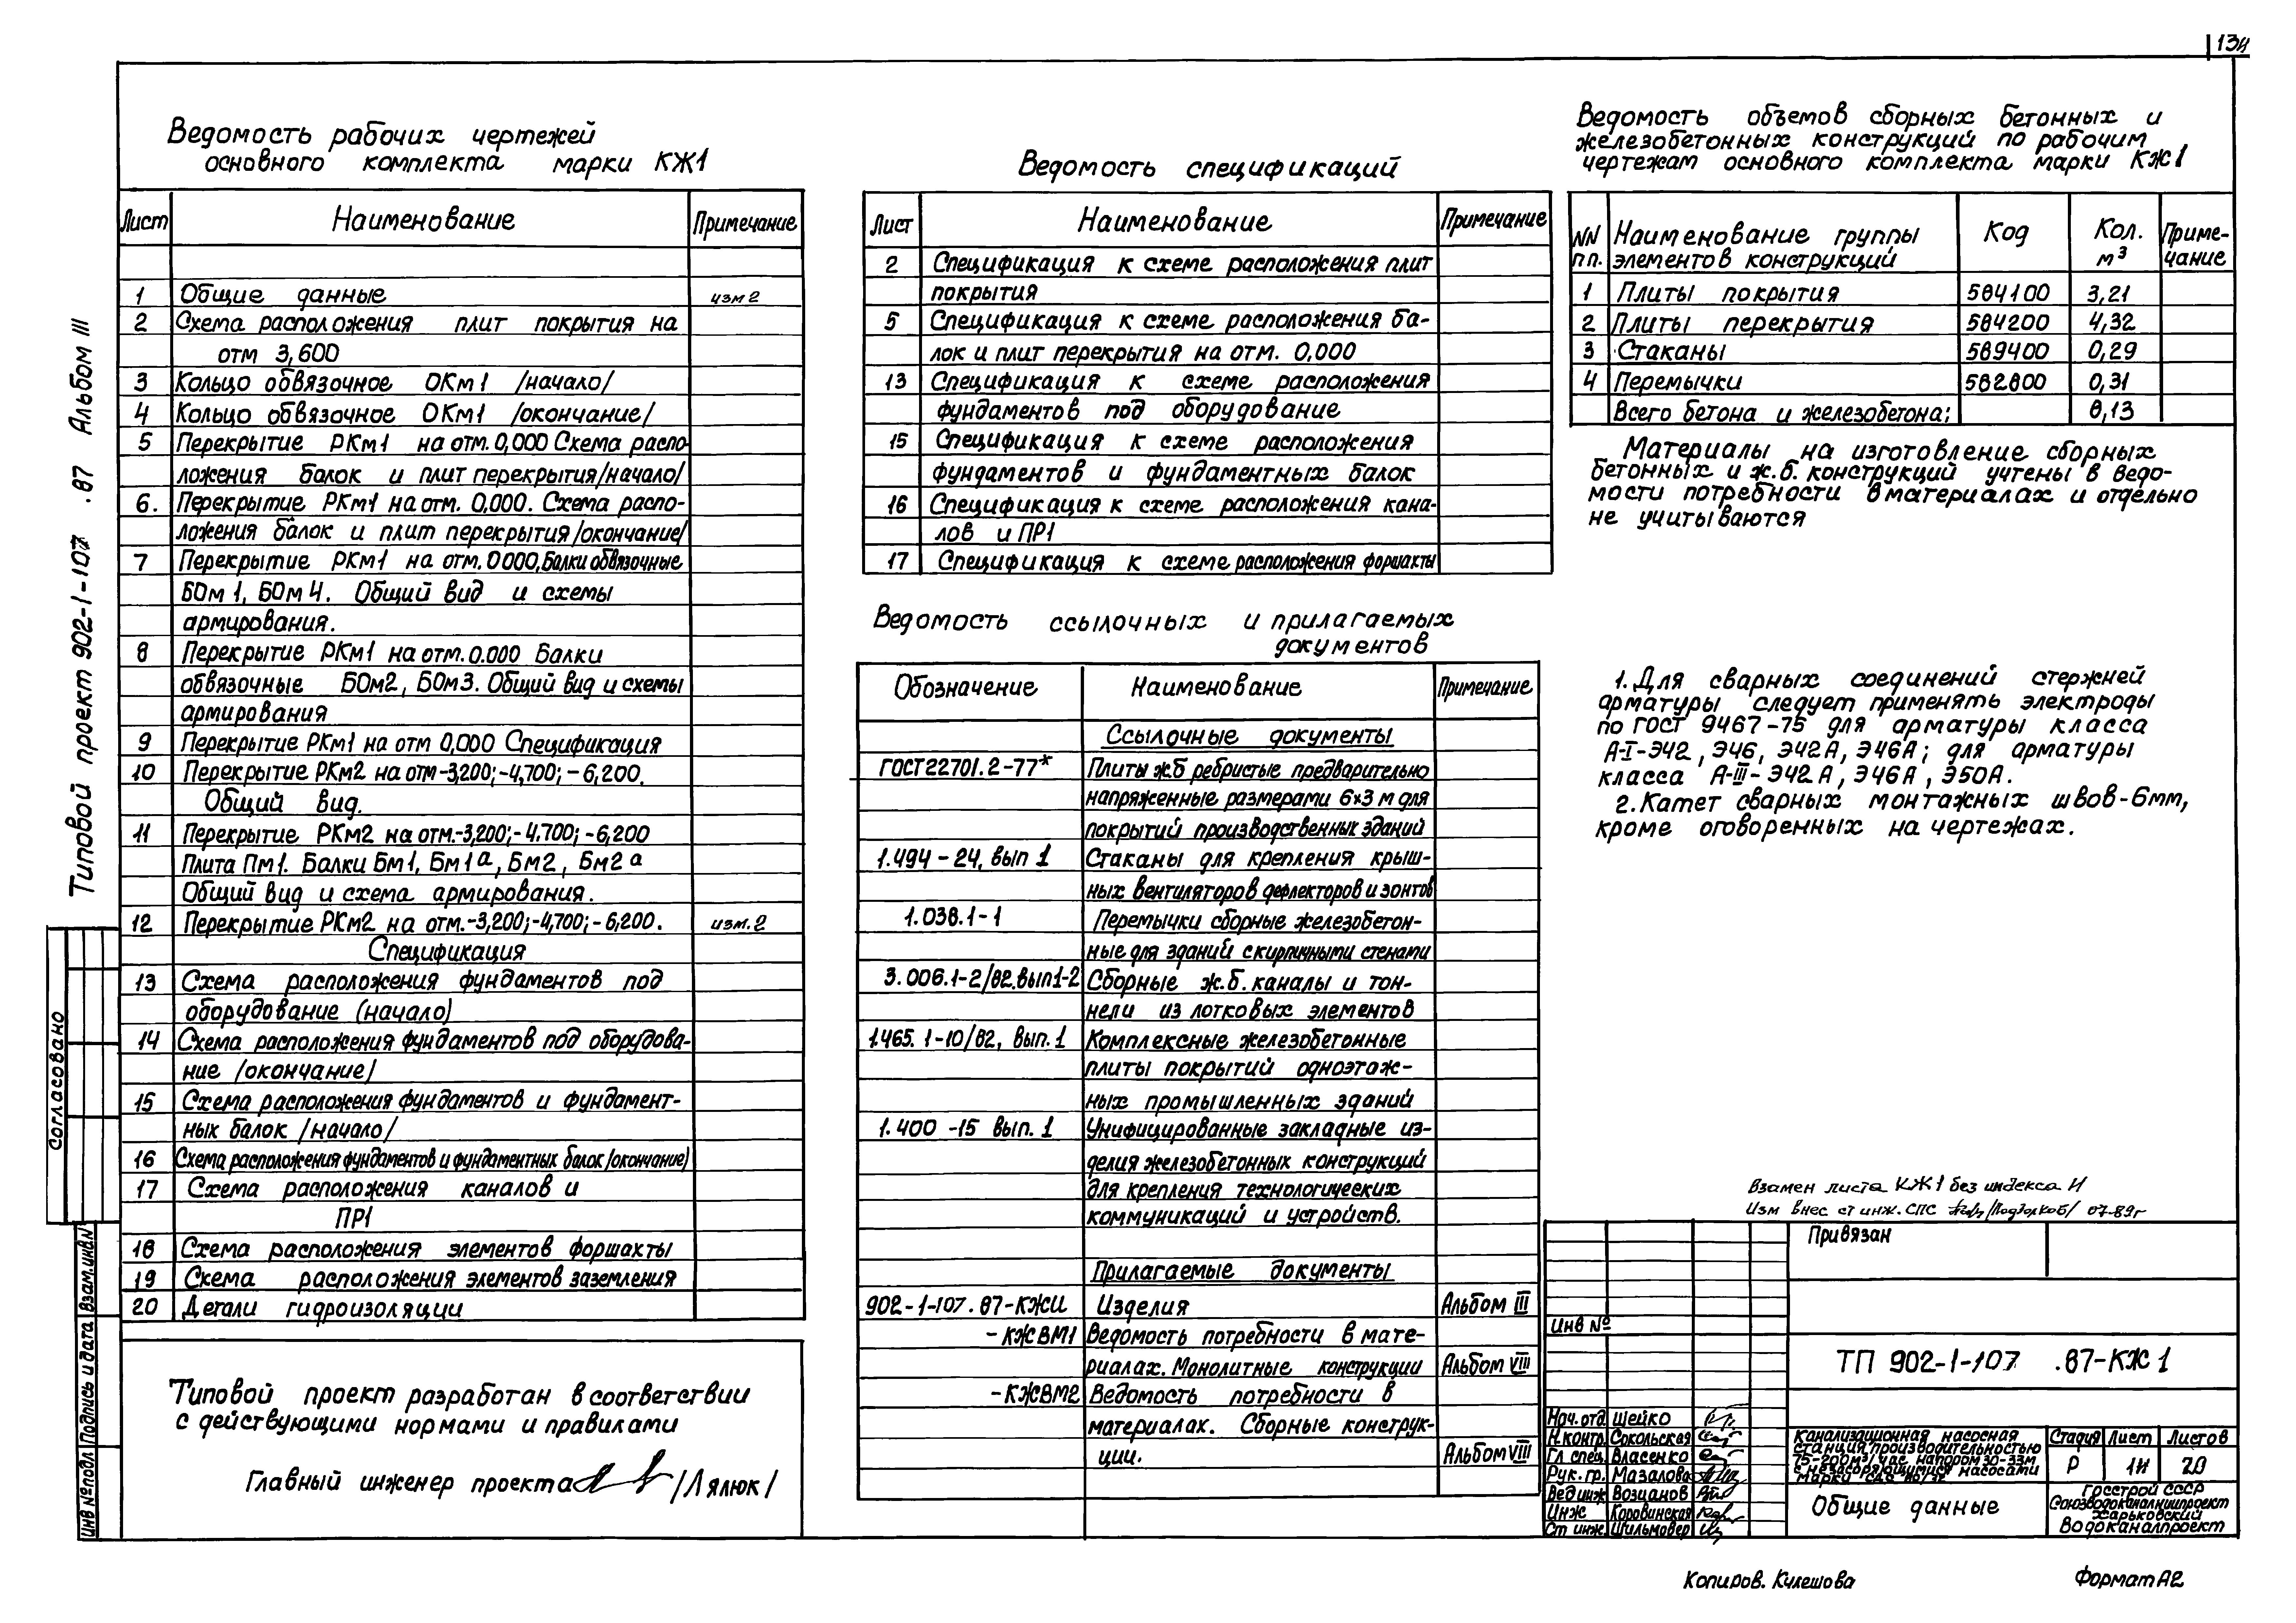 13и
Ведомость рабочих чертежей
основного комплекта марки КЖ1
Лист Наименование Примечание
1 Общие данные изм 2
2 Схема расположения плит покрытия на
отм 3,600
3 Кольцо обвязочное ОКм1 /начало/
4 Кольцо обвязочное ОКм1 /окончание/
5 Перекрытие РКм1 на отм. 0,000 Схема распо-
ложения балок и плит перекрытия/начало/
6. Перекрытие РКм1 на отм. 0,000. Схема распо-
ложения балок и плит перекрытия/окончание/
7 Перекрытие РКм1 на отм. 0 000. Балки обвязочные
БОм1, БОм4. Общий вид и схемы
армирования.
8 Перекрытие РКм1 на отм. 0.000 Балки
обвязочные БОм2, БОм3. Общий вид и схемы
армирования
9 Перекрытие РКм1 на отм 0,000 Спецификация
10 Перекрытие РКм2 на отм -3,200; -4,700; -6,200.
Общий вид.
11 Перекрытие РКм2 на отм. -3,200; -4.700; -6,200
Плита Пм1. Балки Бм1, Бм1а, Бм2, Бм2а
Общий вид и схема армирования.
12 Перекрытие РКм2 на отм. -3,200; -4,700; -6,200. изм. 2
Спецификация
13 Схема расположения фундаментов под
оборудование (начало)
14 Схема расположения фундаментов под оборудова-
ние /окончание/
15 Схема расположения фундаментов и фундамент-
ных балок /начало/
16 Схема расположения фундаментов и фундаментных балок /окончание)
17 Схема расположения каналов и
ПР1
18 Схема расположения элементов форшахты
19 Схема расположения элементов заземления
20 Детали гидроизоляции
Типовой проект разработан в соответствии
с действующими нормами и правилами
Главный инженер проекта /Лялюк/
Ведомость спецификаций
Лист Наименование Примечание
2 Спецификация к схеме расположения плит
покрытия
5 Спецификация к схеме расположения ба-
лок и плит перекрытия на отм. 0,000
13 Спецификация к схеме расположения
фундаментов под оборудование
15 Спецификация к схеме расположения
фундаментов и фундаментных балок
16 Спецификация к схеме расположения кана-
лов и ПР1
17 Спецификация к схеме расположения форшахты
Ведомость ссылочных и прилагаемых
документов
Обозначение Наименование Примечание
Ссылочные документы
ГОСТ 22701.2-77* Плиты ж.б ребристые предварительно
напряженные размерами 6×3 м для
покрытий производственных зданий
1.494-24, вып 1 Стаканы для крепления крыш-
ных вентиляторов дефлекторов и зонтов
1.038.1-1 Перемычки сборные железобетон-
ные для зданий с кирпичными стенами
3.006.1-2/82. вып1-2 Сборные ж.б. каналы и тон-
нели из лотковых элементов
1.465.1-10/82, вып. 1 Комплексные железобетонные
плиты покрытий одноэтаж-
ных промышленных зданий
1.400-15 вып. 1 Унифицированные закладные из-
делия железобетонных конструкций
для крепления технологических
коммуникаций и устройств.
Прилагаемые документы
902-1-107.87-КЖИ Изделия Альбом III
-КЖВМ1 Ведомость потребности в мате-
риалах. Монолитные конструкции Альбом VIII
-КЖВМ2 Ведомость потребности в
материалах. Сборные конструк-
ции. Альбом VIII
Ведомость объемов сборных бетонных и
железобетонных конструкций по рабочим
чертежам основного комплекта марки КЖ1
NN Наименование группы Код Кол. Приме-
пп. элементов конструкций м³ чание
1 Плиты покрытия 584100 3,21
2 Плиты перекрытия 584200 4,32
3 Стаканы 589400 0,29
4 Перемычки 582800 0,31
Всего бетона и железобетона: 8,13
Материалы на изготовление сборных
бетонных и ж.б. конструкций учтены в ведо-
мости потребности в материалах и отдельно
не учитываются
1. Для сварных соединений стержней
арматуры следует применять электроды
по ГОСТ 9467-75 для арматуры класса
А-I-Э42, Э46, Э42А, Э46А; для арматуры
класса А-III-Э42А, Э46А, Э50А.
2. Катет сварных монтажных швов-6мм,
кроме оговоренных на чертежах.
Взамен листа КЖ1 без индекса И
Изм внес ст инж. СПС 07.89г
Привязан
Инв №
ТП 902-1-107 .87-КЖ1
Нач. отд. Шейко
Н.контр. Сокольская
Гл спец. Власенко
Рук. гр. Мазалова
Вед инж Возианов
Инж Коровинская
Ст инж. Шильмовер
Канализационная насосная
станция производительностью
75-200м³/час, напором 30-33м
с незасоряющимися насосами
марки
Стадия Лист Листов
Р 1и 20
Общие данные
Госстрой СССР
Союзводоканалниипроект
Харьковский
Водоканалпроект
Копиров. Кулешова
Формат А2
Типовой проект 902-1-107 .87 Альбом III
Согласовано
Инв № подл Подпись и дата Взам. инв N